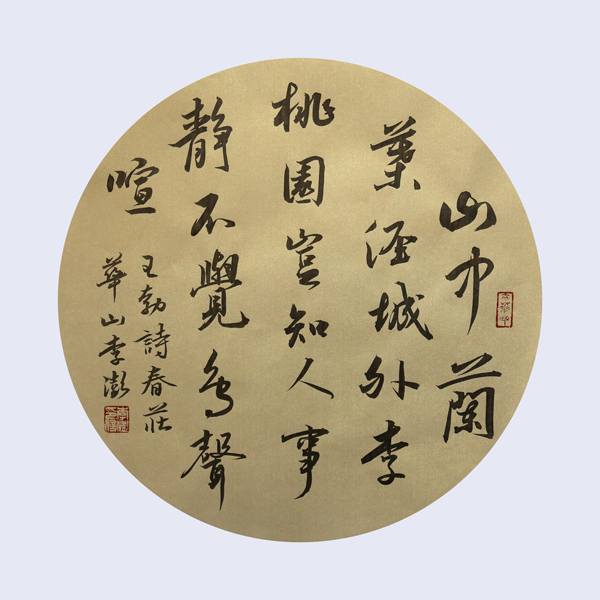 山中蘭
葉徑城外李
桃園豈知人事
靜不覺鳥聲
喧
王勃詩春莊
華山李澎